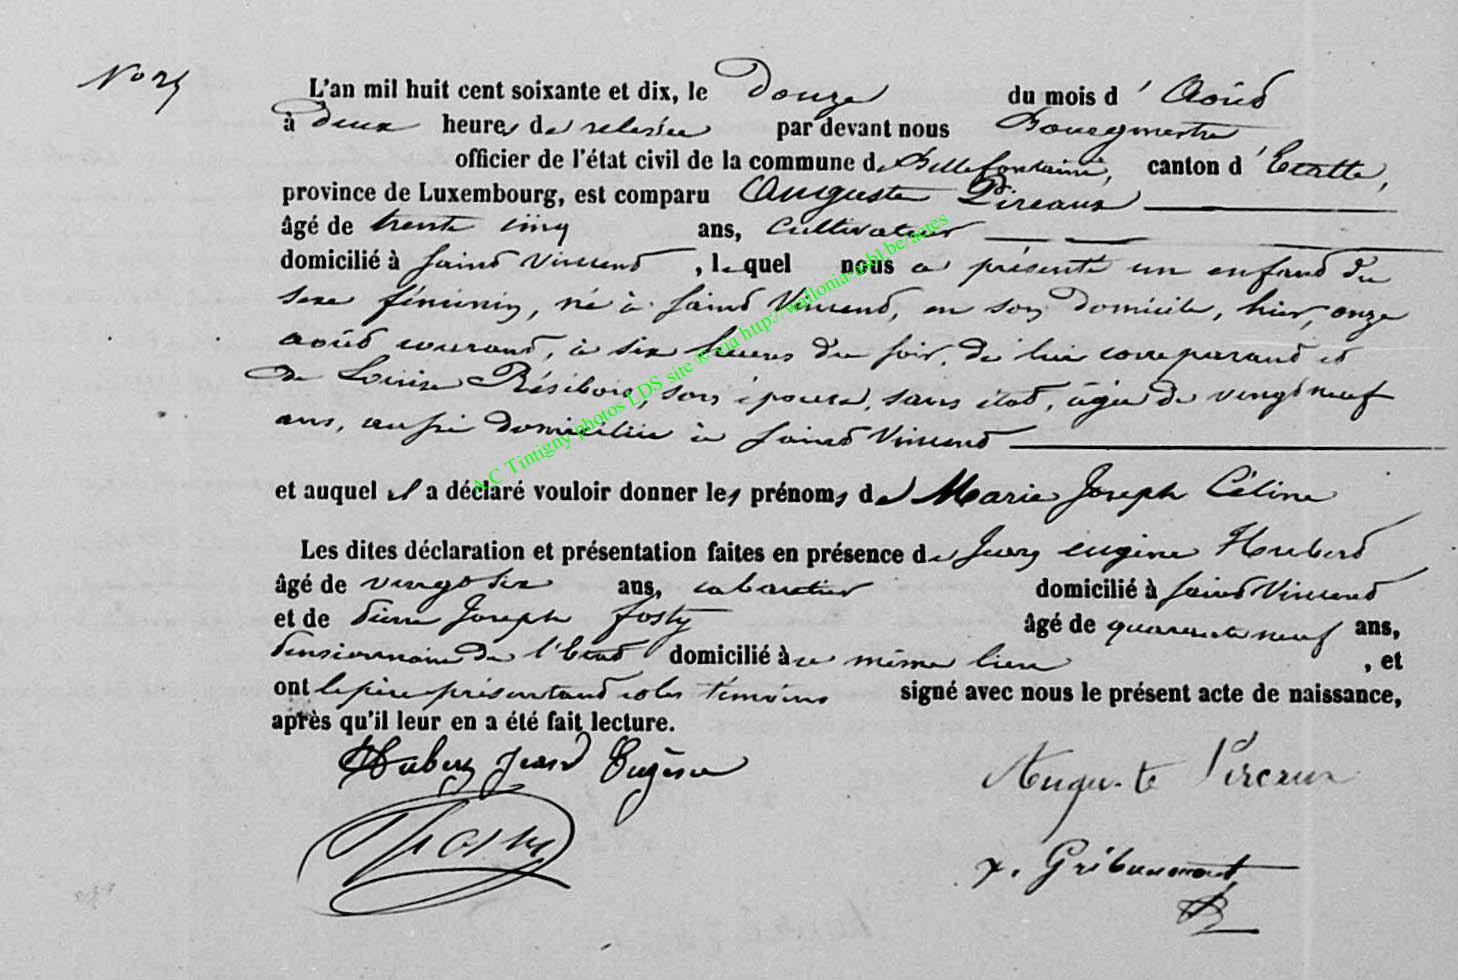 N° 25
L'an mil huit cent soixante et dix, le Douze du mois d'Août
à deux heures de relevée par devant nous Bourgmestre
officier de l'état civil de la commune de Bellefontaine, canton d'Etalle,
province de Luxembourg, est comparu Auguste Pireaux
âgé de trente cinq ans, cultivateur
domicilié à Saint Vincent, lequel nous a présenté un enfant du
sexe féminin, né à Saint Vincent, en son domicile, hier, onze
août courant, à six heures du soir, de lui comparant et
de Louise Résibois, son épouse, sans état, âgée de vingt neuf
ans, aussi domiciliée à Saint Vincent
et auquel il a déclaré vouloir donner les prénoms de Marie Joseph Céline
Les dites déclaration et présentation faites en présence de Jean eugène Hubert
âgé de vingt six ans, cabaretier domicilié à Saint Vincent
et de Pierre Joseph Fosty âgé de quarante neuf ans,
Pensionnaire de l'Etat domicilié à ce même lieu, et
ont le père présentant et les témoins signé avec nous le présent acte de naissance,
après qu'il leur en a été fait lecture.
Hubert Jean Eugène
Auguste Pireaux
Fosty
x. Gribaumont
A.C Tintigny photos LDS site ® via http://wallonia-asbl.be/actes